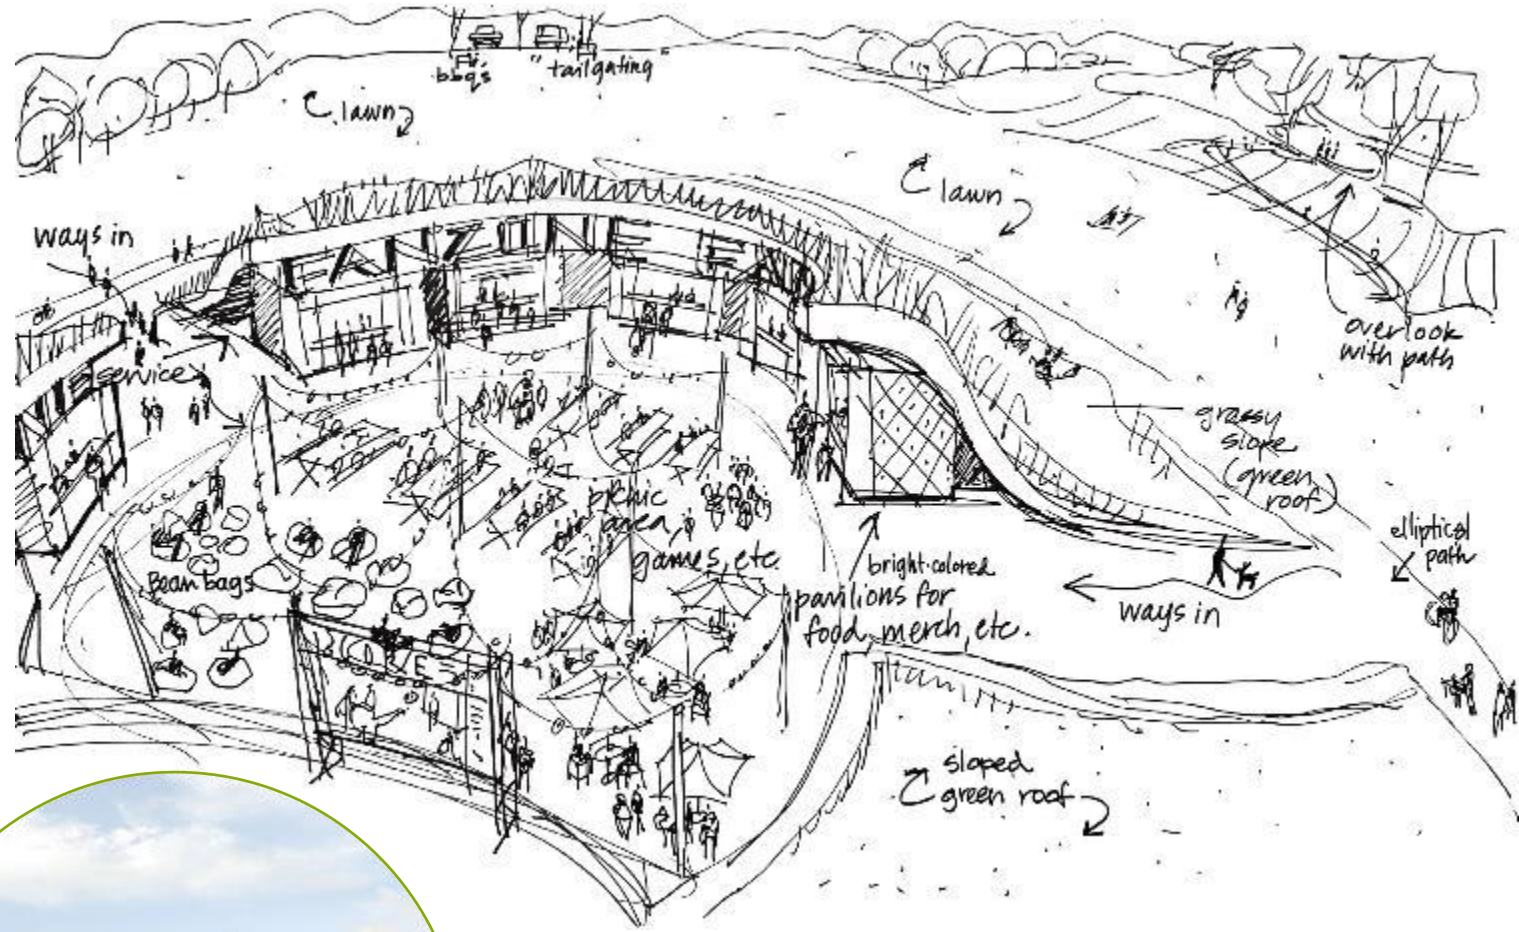 bbqs
"tailgating"
lawn
lawn
ways in
FANZONE
service
overlook
with path
grassy
slope
(green
roof)
picnic
area,
games, etc.
elliptical
path
Bean bags
bright-colored
pavilions for
food, merch, etc.
ways in
sloped
green roof